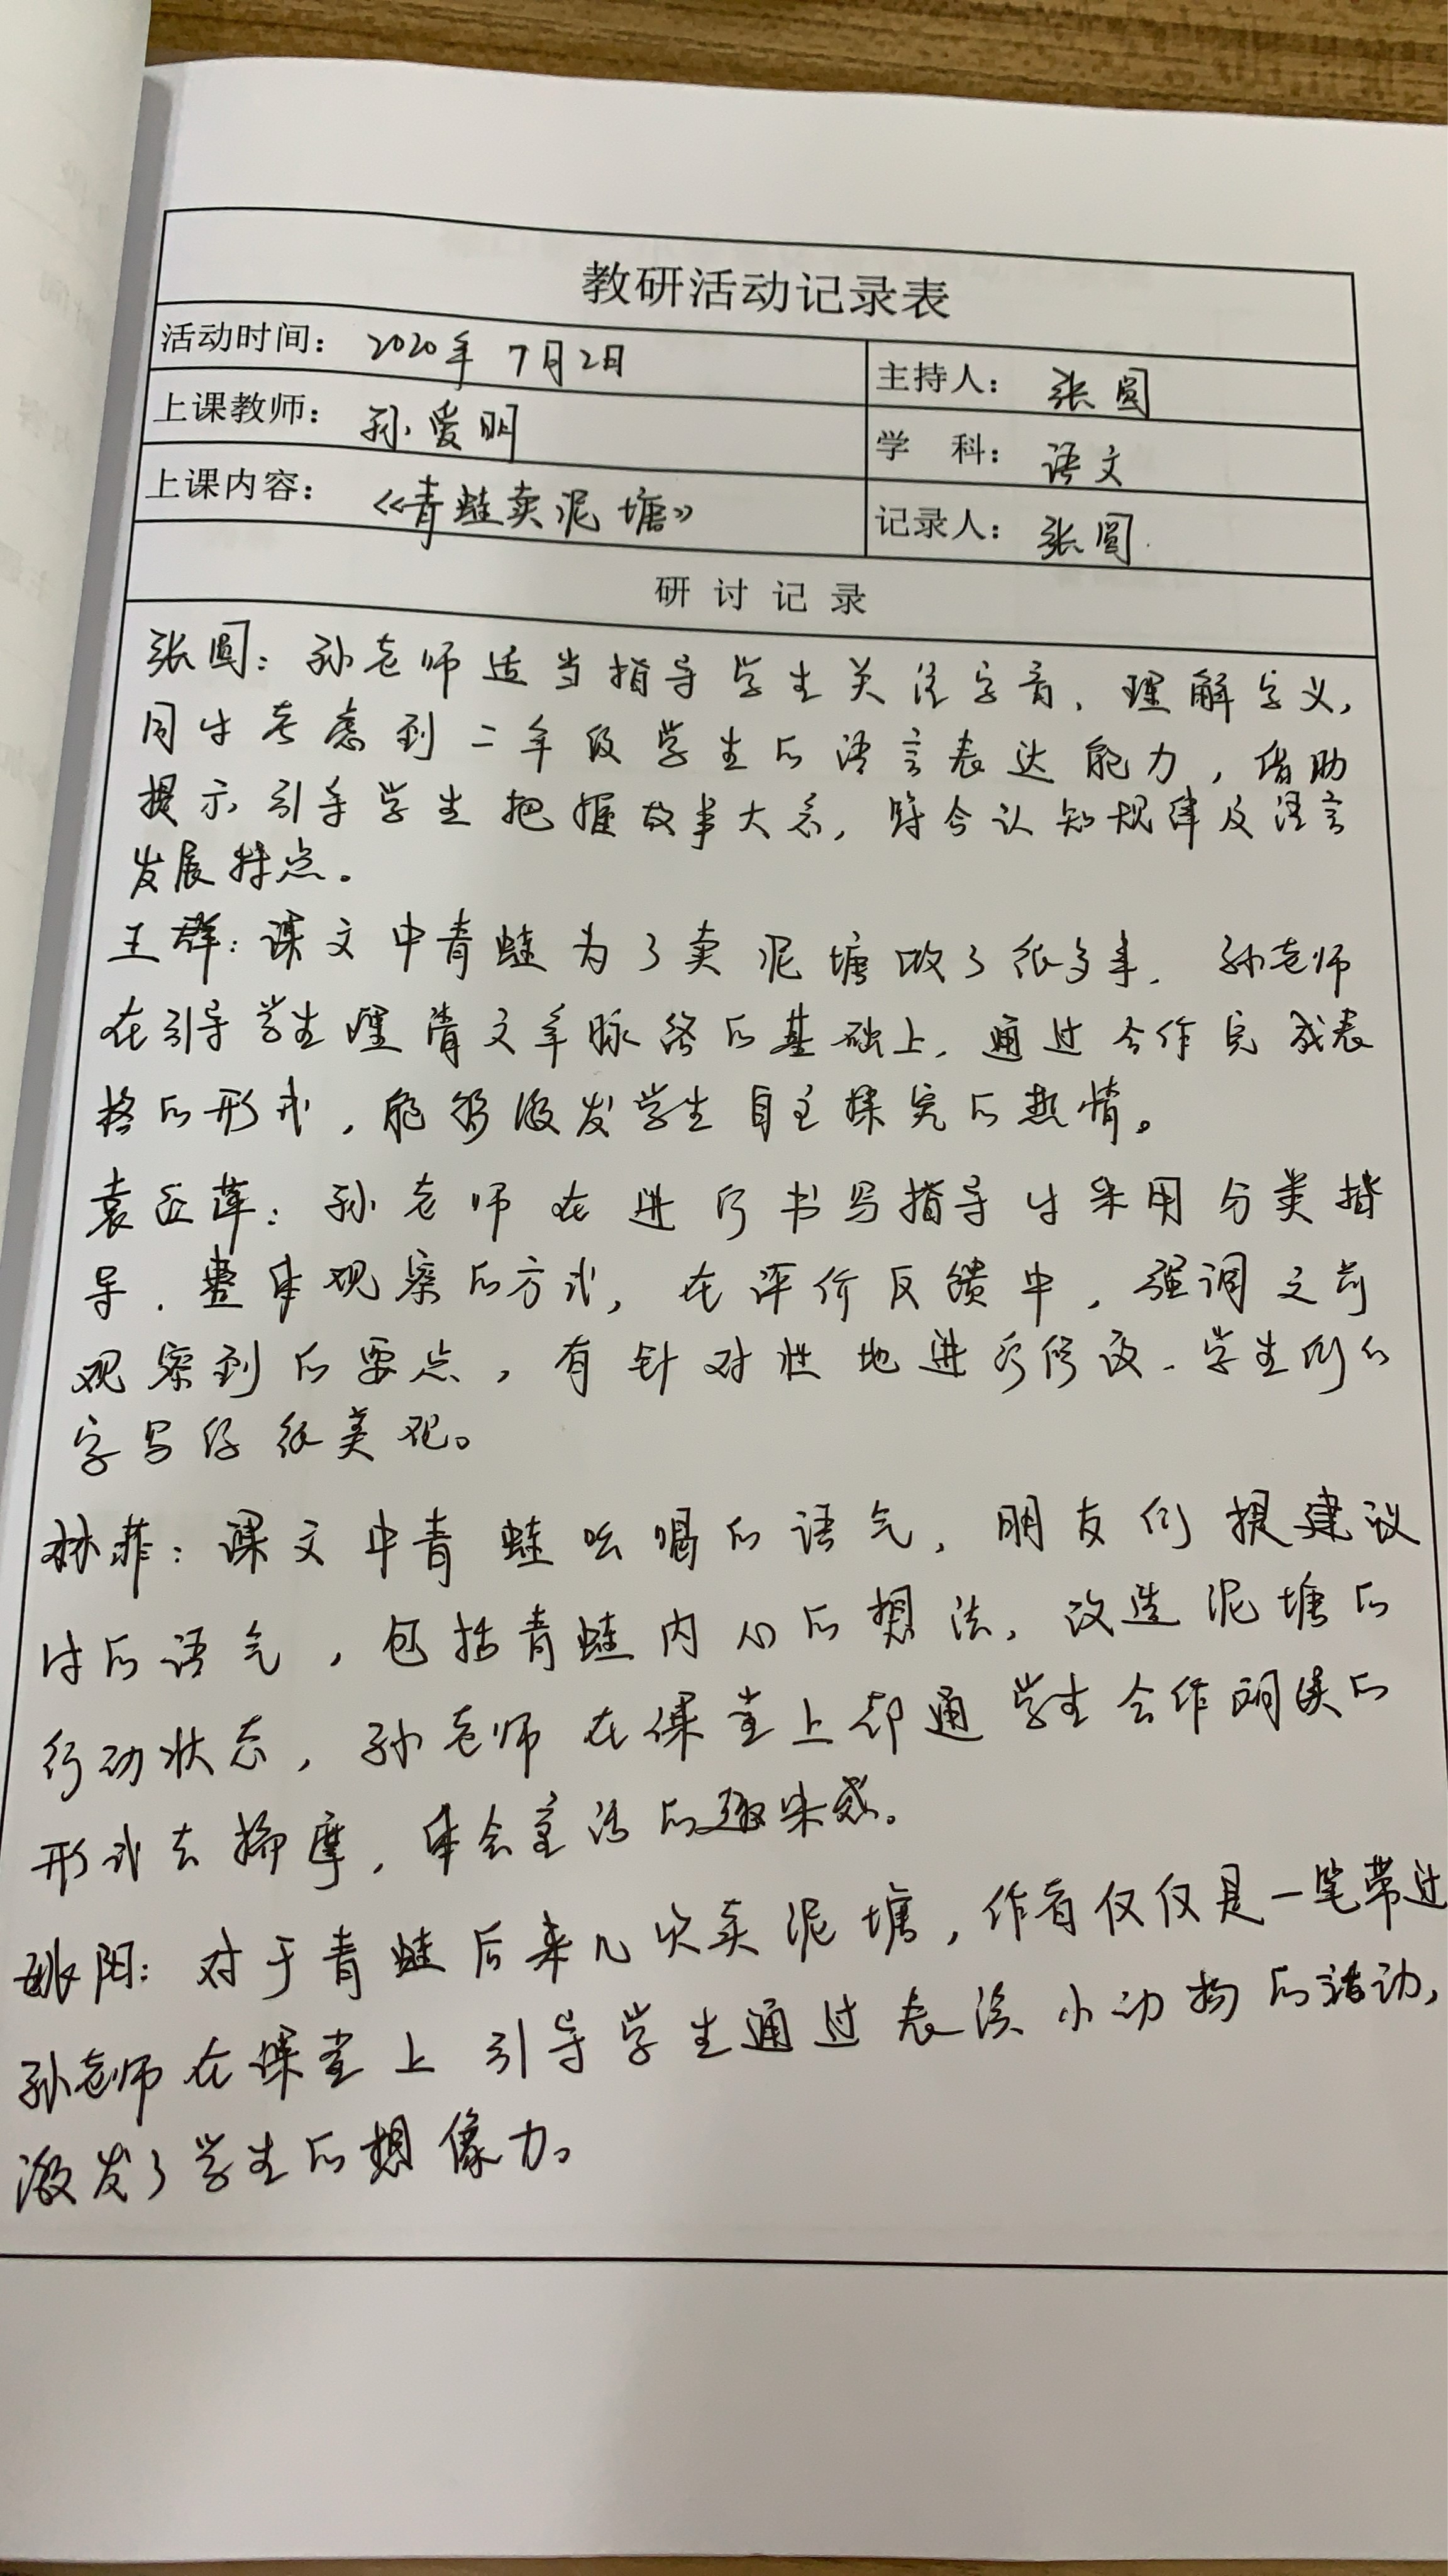 教研活动记录表
活动时间： 2020年 7月2日
主持人： 张圆
上课教师： 孙爱明
学 科： 语文
上课内容： 《青蛙卖泥塘》
记录人： 张圆
研 讨 记 录
张圆：孙老师适当指导学生关注字音、理解字义，
同时考虑到二年级学生的语言表达能力，借助
提示引导学生把握故事大意，符合认知规律及语言
发展特点。
王群：课文中青蛙为了卖泥塘做了很多事，孙老师
在引导学生理清文章脉络的基础上，通过合作完成表
格的形式，能够激发学生自主探究的热情。
袁丘萍：孙老师在进行书写指导时采用分类指
导、整体观察的方式，在评价反馈中，强调之前
观察到的要点，有针对性地进行修改，学生们的
字写得很美观。
林菲：课文中青蛙吆喝的语气，朋友们提建议
时的语气，包括青蛙内心的想法，改造泥塘的
行动状态，孙老师在课堂上都通学生合作朗读的
形式去揣摩，体会生活的趣味感。
姚阳：对于青蛙后来几次卖泥塘，作者仅仅是一笔带过
孙老师在课堂上引导学生通过表演小动物的活动，
激发了学生的想像力。